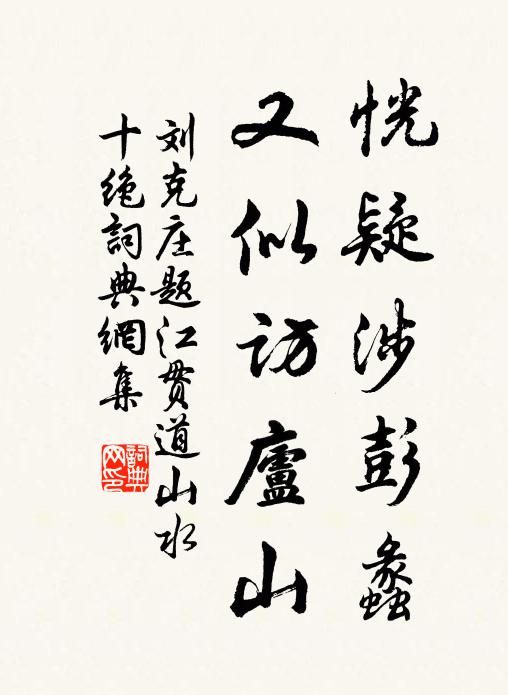 恍疑涉彭蠡
又似访廬山
刘克庄题江贯道山水
十绝詞典網集
詞典网印